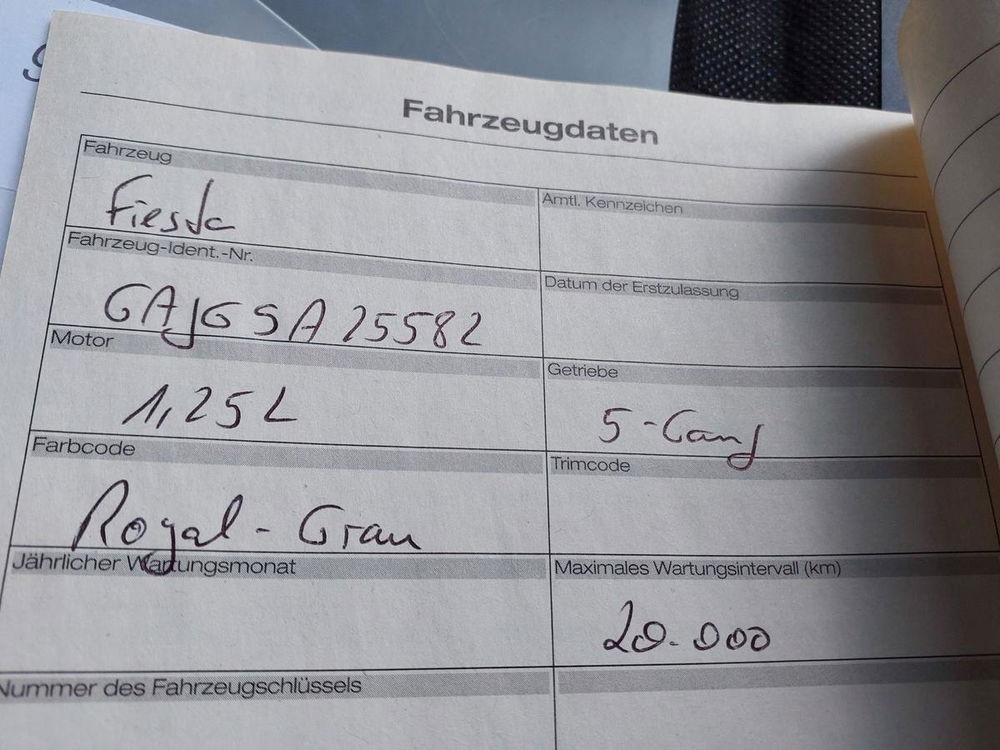 Fahrzeugdaten
Fahrzeug
Fiesta
Amtl. Kennzeichen
Fahrzeug-Ident.-Nr.
GAJGSA25582
Datum der Erstzulassung
Motor
1,25L
Getriebe
5-Gang
Farbcode
Royal-Grau
Trimcode
Jährlicher Wartungsmonat
Maximales Wartungsintervall (km)
20.000
Nummer des Fahrzeugschlüssels